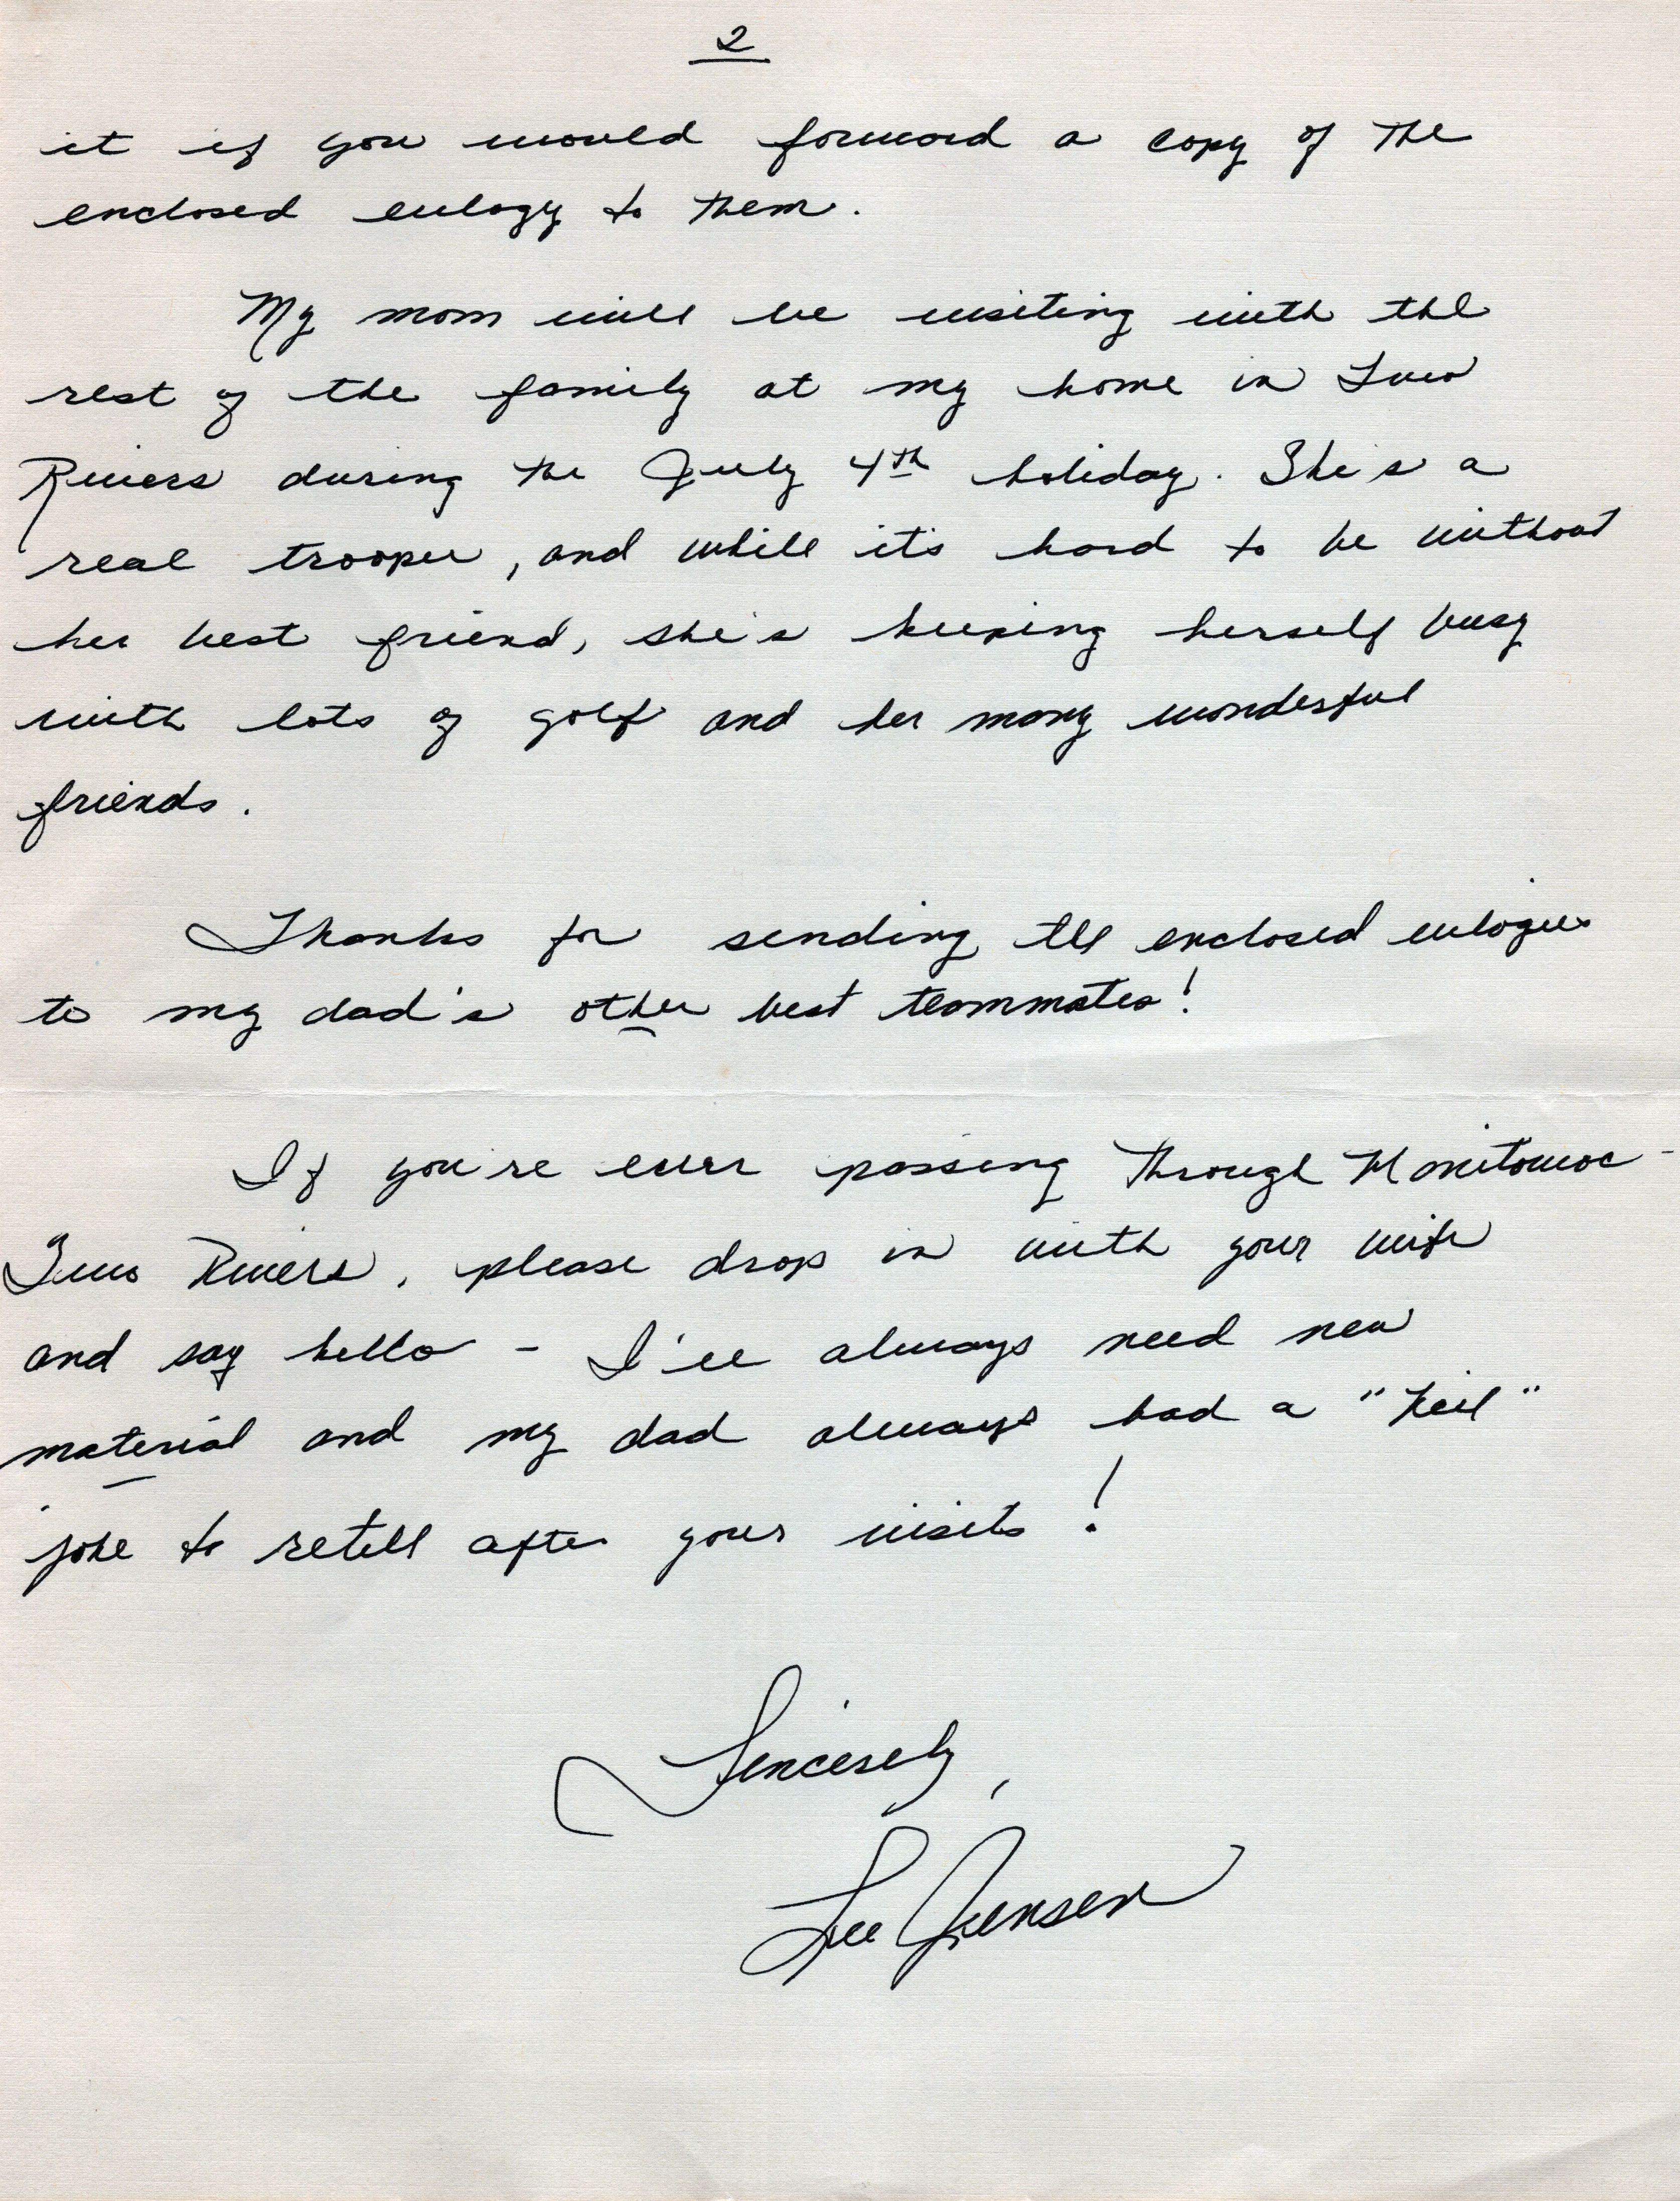 2
it if you would forward a copy of the
enclosed eulogy to them.
My mom will be visiting with the
rest of the family at my home in Two
Rivers during the July 4th holiday. She's a
real trooper, and while it's hard to be without
her best friend, she's keeping herself busy
with lots of golf and her many wonderful
friends.
Thanks for sending the enclosed eulogies
to my dad's other best teammates!
If you're ever passing through Manitowoc -
Two Rivers, please drop in with your wife
and say hello - I'll always need new
material and my dad always had a "Keil"
joke to retell after your visits!
Sincerely,
Lee Jensen